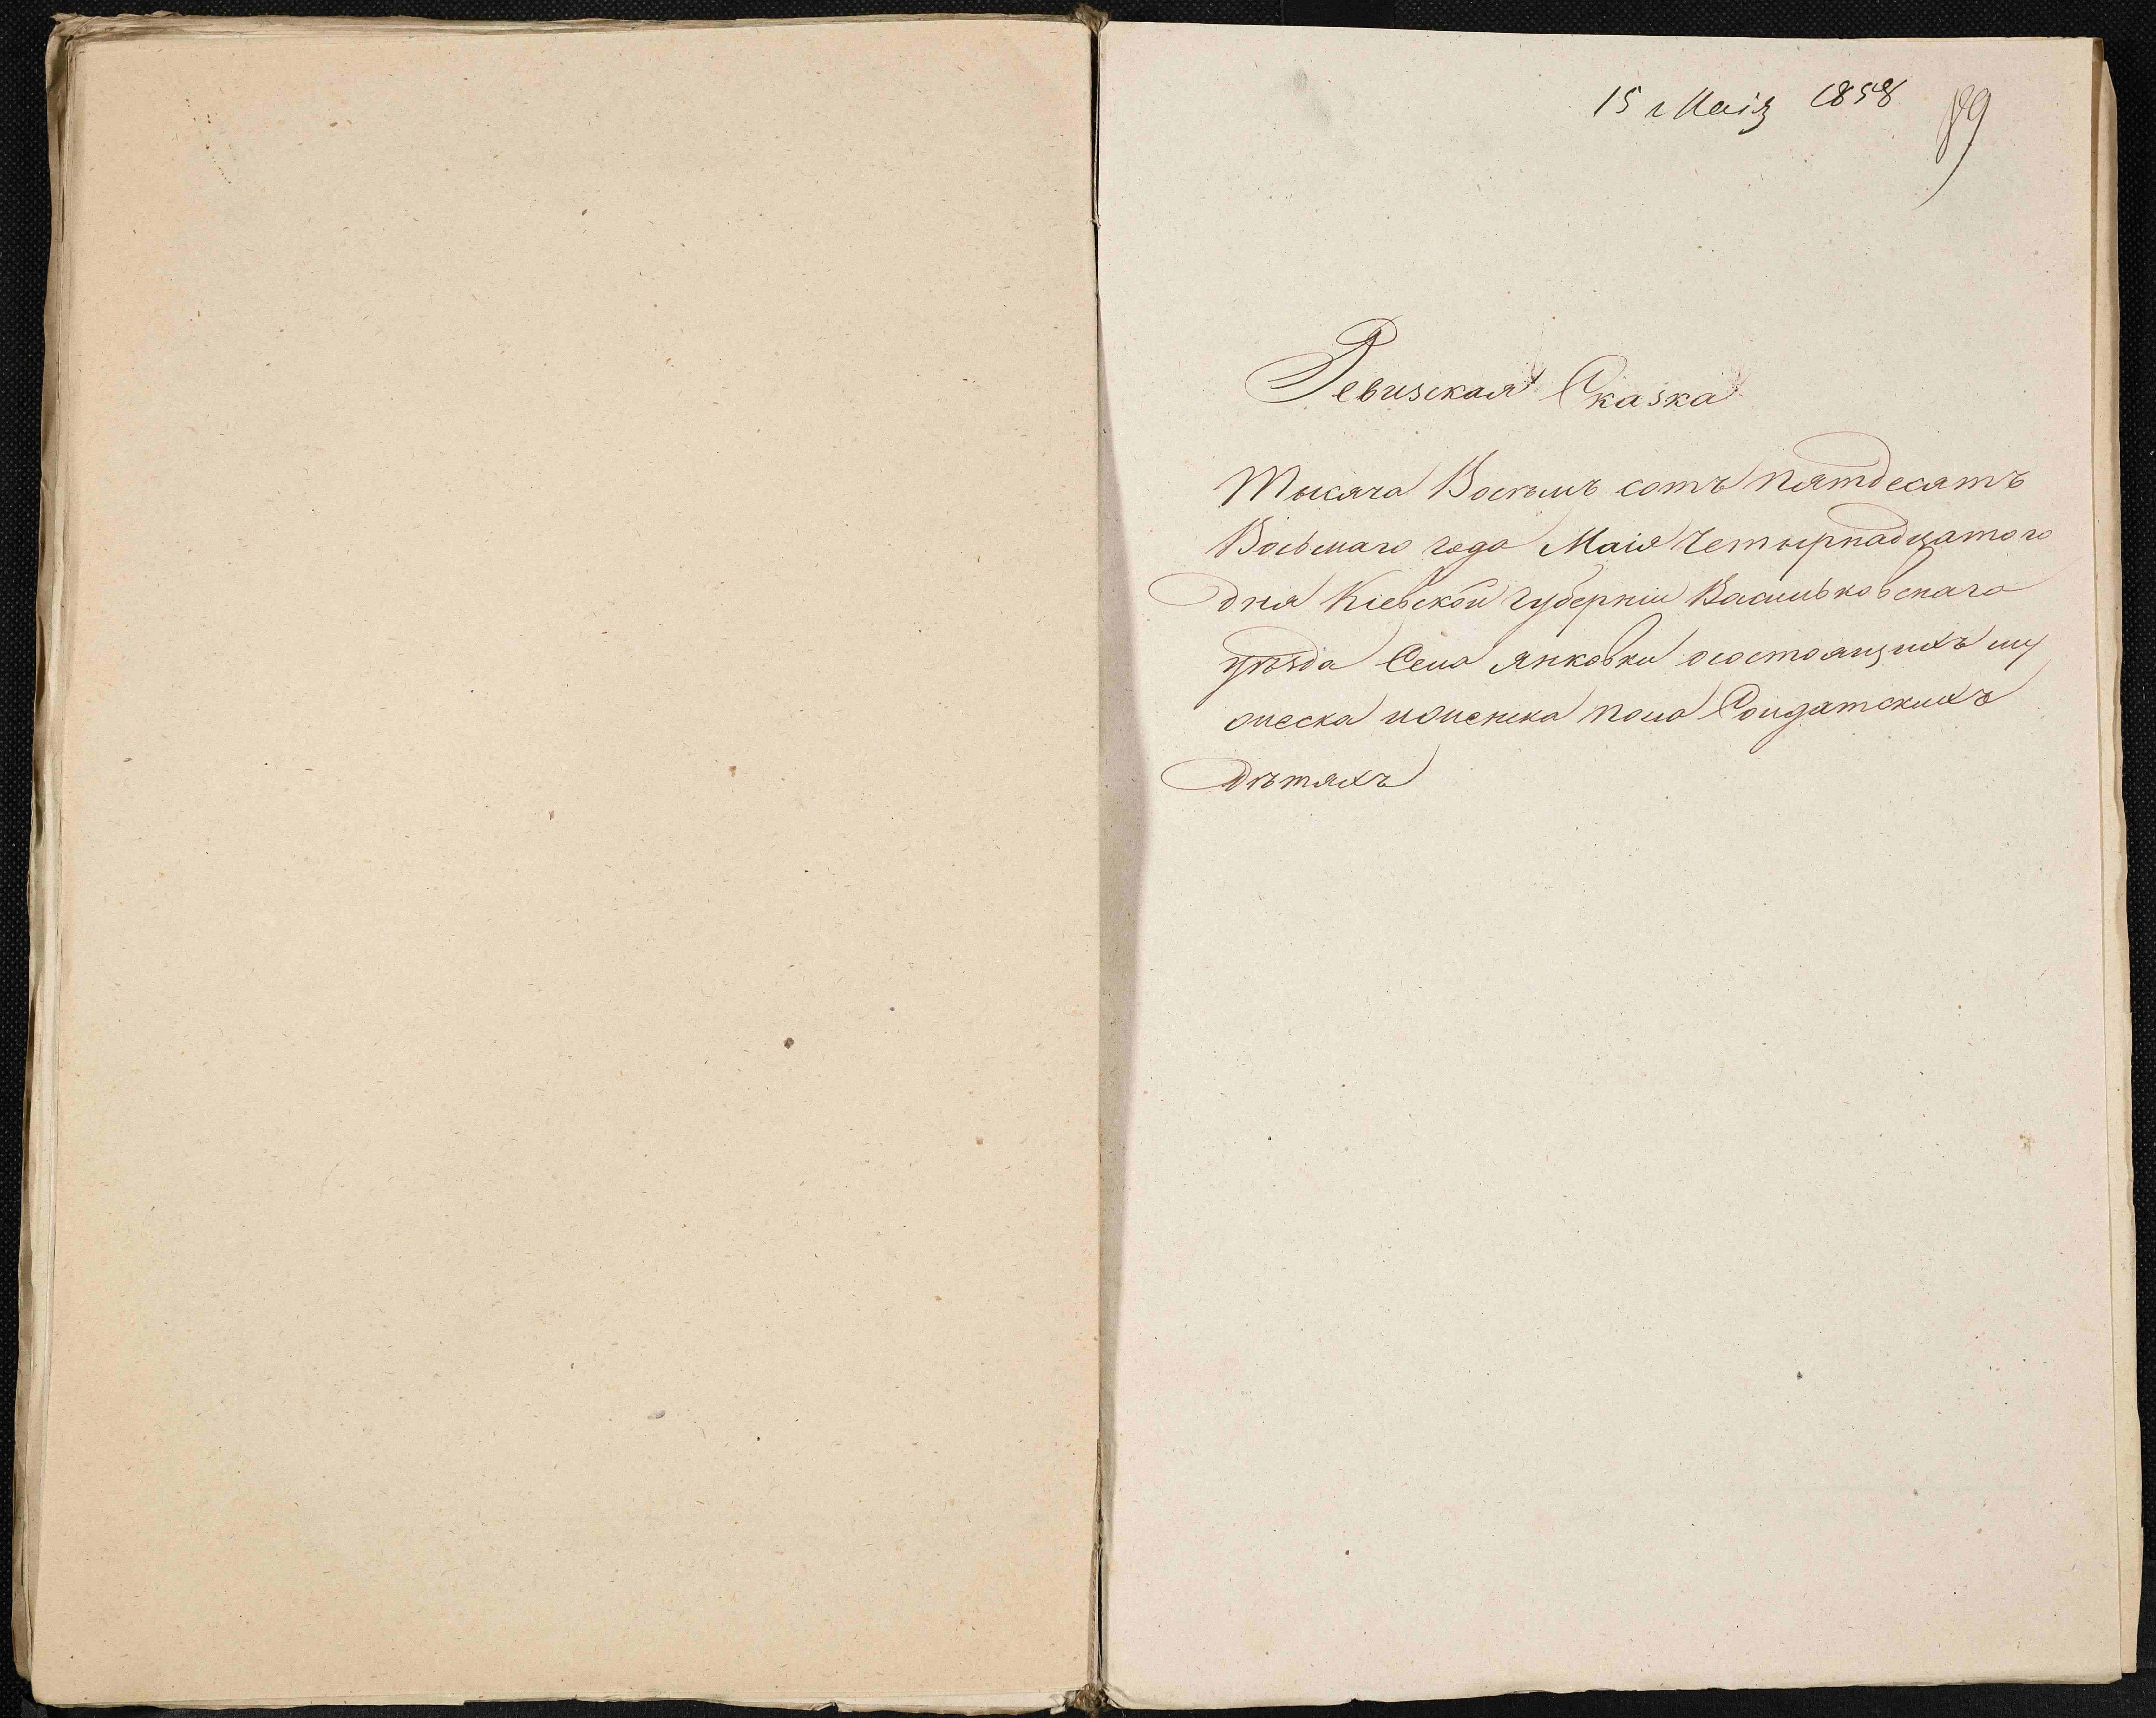 15 Маія 1858
89
Ревизская Сказка
Тысяча Восемь сотъ пятдесятъ
Восьмаго года Маія Четырнадцатого
дня Кіевской Губерніи Васильковскаго
уѣзда Села Янковки осостоящихъ му
ожеска иженска пола Солдатскихъ
дѣтяхъ